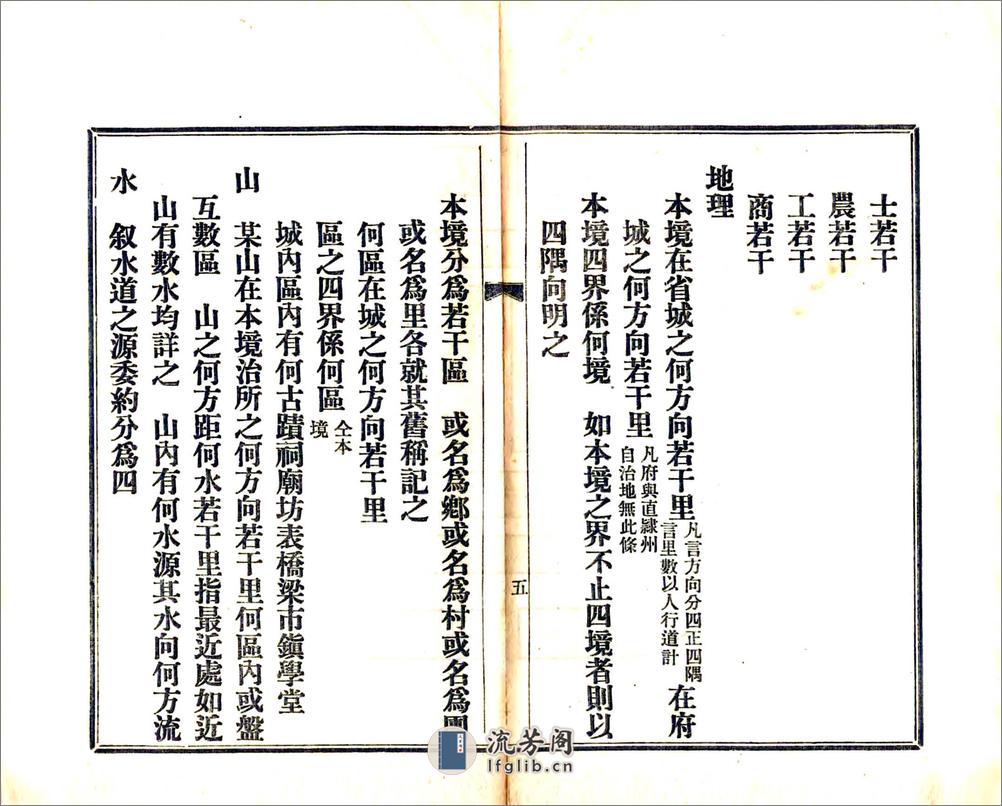 士若干
農若干
工若干
商若干
地理
本境在省城之何方向若干里凡言方向分四正四隅言里數以人行道計在府
城之何方向若干里凡府與直隸州自治地無此條
本境四界係何境　如本境之界不止四境者則以
四隅向明之
五
本境分爲若干區　或名爲鄉或名爲村或名爲團
或名爲里各就其舊稱記之
何區在城之何方向若干里
區之四界係何區仝本境
城內區內有何古蹟祠廟坊表橋梁市鎮學堂
山　某山在本境治所之何方向若干里何區內或盤
互數區　山之何方距何水若干里指最近處如近
山有數水均詳之　山內有何水源其水向何方流
水　叙水道之源委約分爲四
流芳阁
lfglib.cn